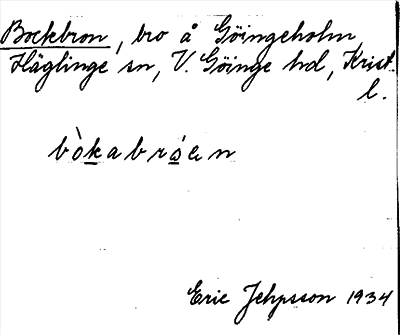 Bockbron, bro å Göingeholm,
Häglinge sn, V. Göinge hd, Krist.
l.
bòkabróen
Eric Jehpsson 1934